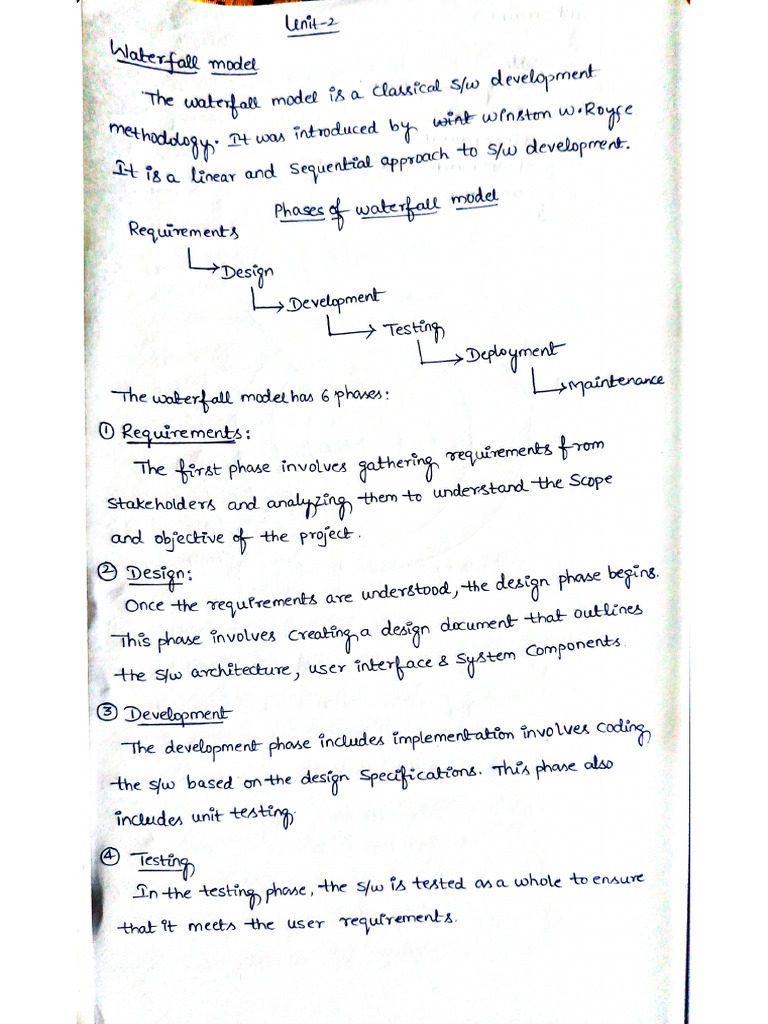 Unit-2
Waterfall model
The waterfall model is a classical s/w development
methodology. It was introduced by wint Winston W. Royce
It is a linear and sequential approach to s/w development.
Phases of waterfall model
Requirements
Design
Development
Testing
Deployment
Maintenance
The waterfall model has 6 phases:
① Requirements:
The first phase involves gathering requirements from
stakeholders and analyzing them to understand the scope
and objective of the project.
② Design:
Once the requirements are understood, the design phase begins.
This phase involves creating a design document that outlines
the s/w architecture, user interface & system components.
③ Development
The development phase includes implementation involves coding
the s/w based on the design specifications. This phase also
includes unit testing.
④ Testing
In the testing phase, the s/w is tested as a whole to ensure
that it meets the user requirements.